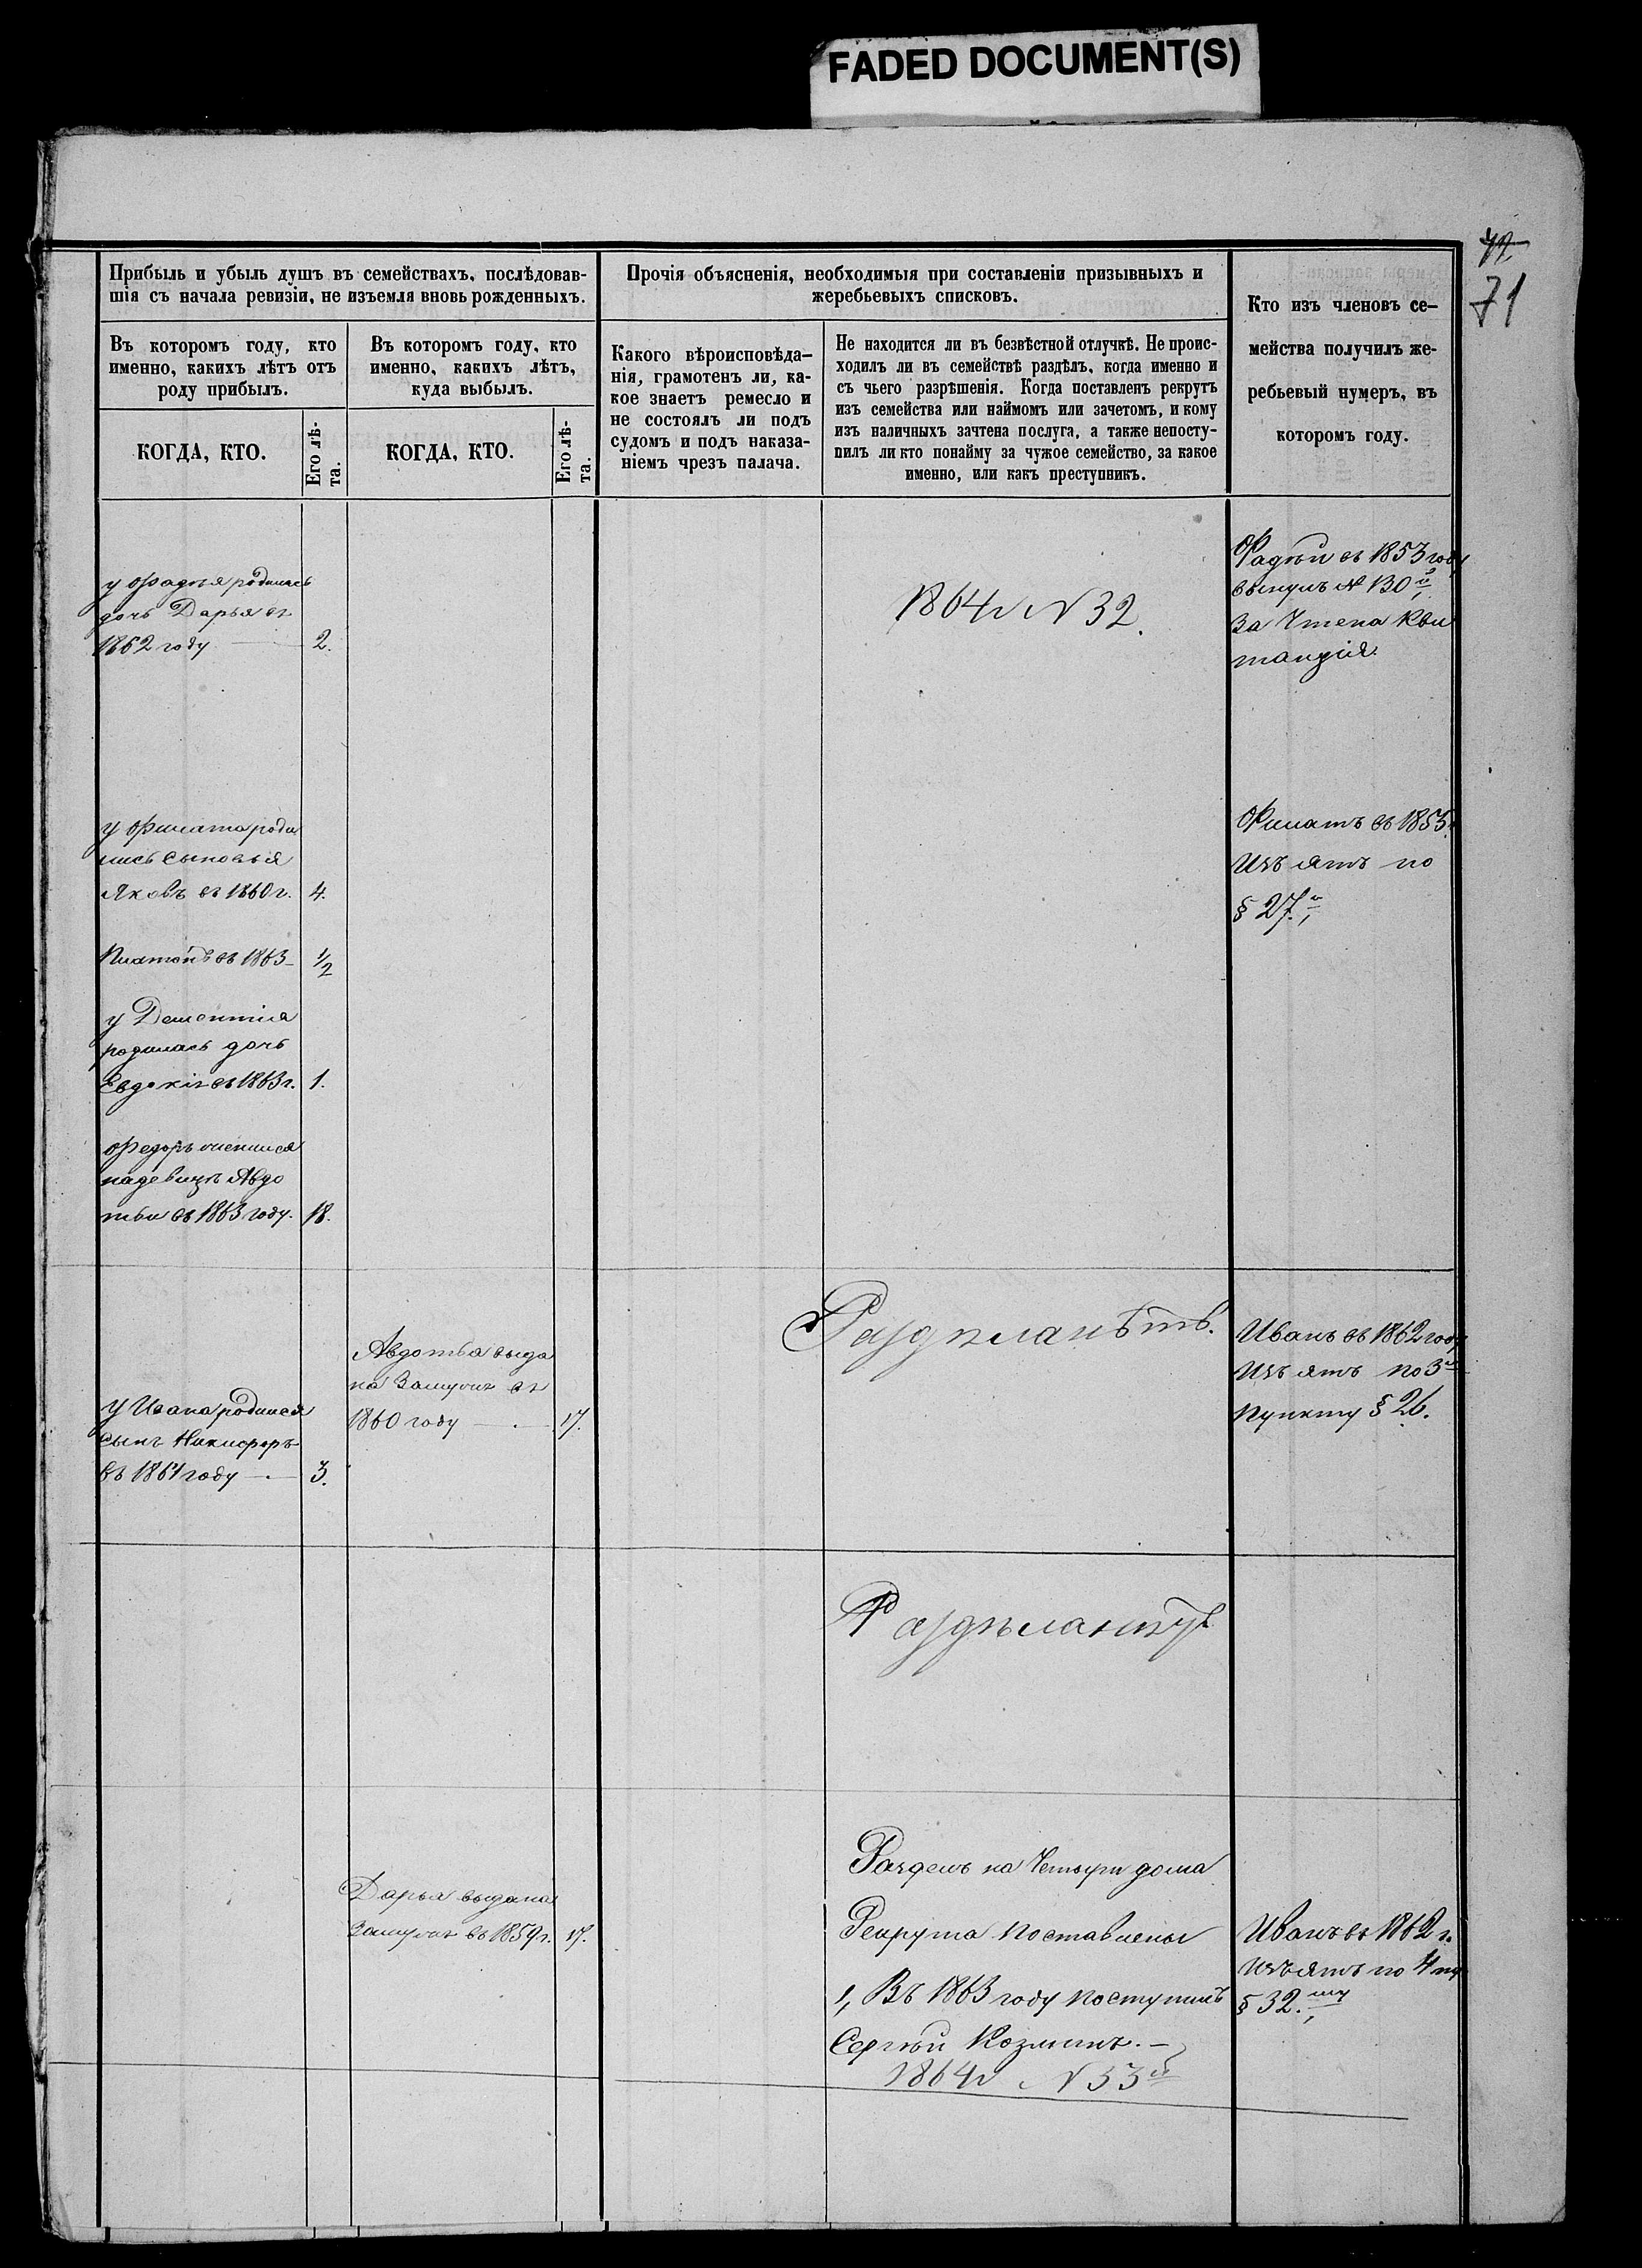 FADED DOCUMENT(S)
72
71
Прибыль и убыль душъ въ семействахъ, послѣдовав-
шія съ начала ревизіи, не изъемля вновь рожденныхъ.
Въ которомъ году, кто
именно, какихъ лѣтъ отъ
роду прибылъ.
КОГДА, КТО.
Его лѣ-
та.
Въ которомъ году, кто
именно, какихъ лѣтъ,
куда выбылъ.
КОГДА, КТО.
Его лѣ-
та.
Прочія объясненія, необходимыя при составленіи призывныхъ и
жеребьевыхъ списковъ.
Какого вѣроисповѣда-
нія, грамотенъ ли, ка-
кое знаетъ ремесло и
не состоялъ ли подъ
судомъ и подъ наказа-
ніемъ чрезъ палача.
Не находится ли въ безвѣстной отлучкѣ. Не проис-
ходилъ ли въ семействѣ раздѣлъ, когда именно и
съ чьего разрѣшенія. Когда поставленъ рекрутъ
изъ семейства или наймомъ или зачетомъ, и кому
изъ наличныхъ зачтена послуга, а также непосту-
пилъ ли кто понайму за чужое семейство, за какое
именно, или какъ преступникъ.
Кто изъ членовъ се-
мейства получилъ же-
ребьевый нумеръ, въ
которомъ году.
у Фадея родилась
дочь Дарья въ
1862 году 2.
1864 г N 32.
Фадѣй въ 1853 году
вынулъ № 130й
За Чтена Кви
танція.
у Филата роди
лись сыновья
Яковъ въ 1860 г. 4.
Платонъ въ 1863 - 1/2
у Дементия
родилась дочь
Евдокія въ 1863 г. 1.
Федоръ женился
на девицѣ Авдо
тьи въ 1863 году. 18.
Филатъ въ 1855
Изъ ятъ по
§ 27.й
у Ивана родился
сынъ Никифоръ
въ 1861 году 3.
Авдотья выда
на Замужъ въ
1860 году 17.
Иванъ въ 1862 году
Изъ ятъ по 3й
пункту § 26.
Дарья выдана
Замужъ въ 1859 г. 17.
Разделъ на Четыри дома
Рекрута поставлены
1, Въ 1863 году поступилъ
Сергѣй Козминъ. -
1864 г N 33й
Иванъ въ 1862 г.
Изъятъ по 4 пу
§ 32.му